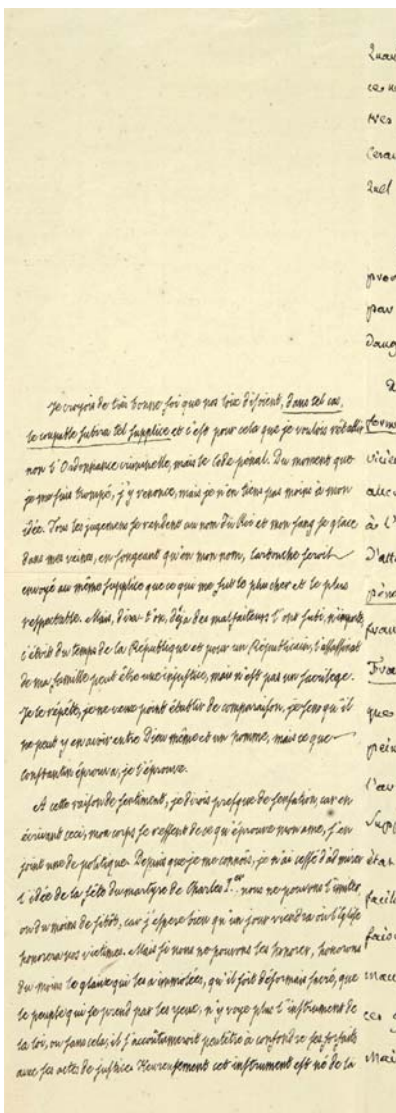 Je croyois de très bonne foi que nos loix disoient, dans tel cas,
le coupable subira tel supplice et c'est pour cela que je voulois rétablir
non l'Ordonnance criminelle, mais le Code pénal. Du moment que
je me suis trompé, j'y renonce, mais je n'en tiens pas moins à mon
idée. Tous les jugemens se rendent au nom du Roi et mon sang se glace
dans mes veines, en songeant qu'en mon nom, Cartouche seroit
envoyé au même supplice que ce qui me fut le plus cher et le plus
respectable. Mais, dira-t'on, déjà des malfaiteurs l'ont subi, n'importe,
c'étoit du temps de la République et pour un Républicain, l'assassinat
de ma famille peut être une injustice, mais n'est pas un sacrilege.
Je le répète, je ne veux point établir de comparaison, je sens qu'il
ne peut y en avoir entre Dieu même et un homme, mais ce que
Constantin éprouva, je l'éprouve.
A cette raison de sentiment, je dirois presque de sensation, car en
écrivant ceci, mon corps se ressent de ce qu'éprouve mon ame, j'en
joint une de politique. Depuis que je me connois, je n'ai cessé d'admirer
l'idée de la fête du martyre de Charles I.er nous ne pouvons l'imiter,
ou du moins de sitôt, car j'espere bien qu'un jour viendra où l'Eglise
honorera nos victimes. Mais si nous ne pouvons les honorer, honorons
du moins le glaive qui les a immolées, qu'il soit désormais sacré, que
le peuple qui se prend par les yeux, n'y voye plus l'instrument de
la loi, ou sans cela, il s'accoutumeroit peutêtre à confondre ses forfaits
avec ses actes de justice. Heureusement cet instrument est né de la